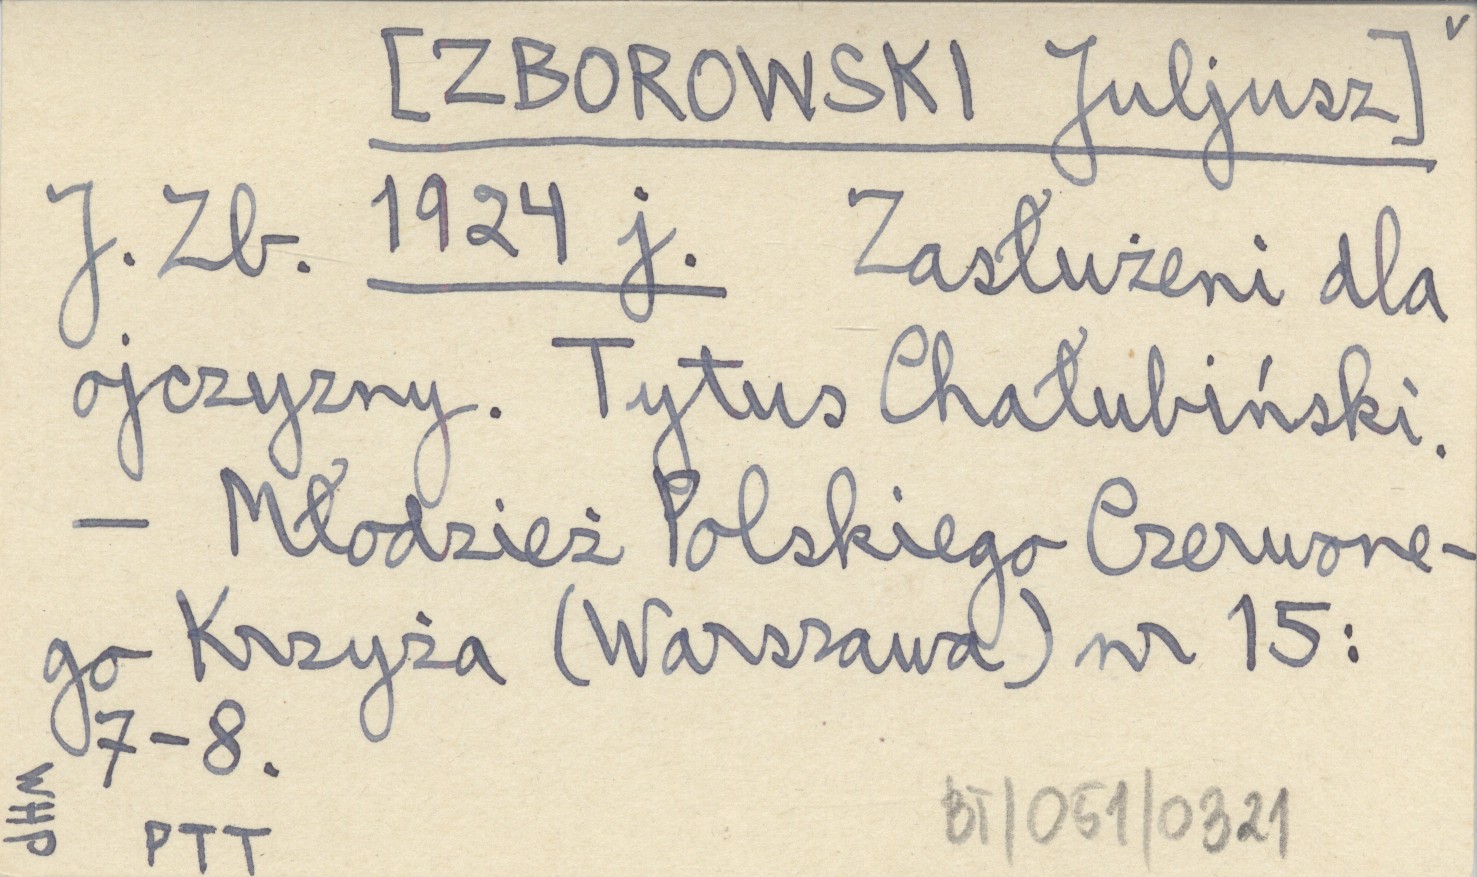 [ZBOROWSKI Juljusz] v
J. Zb. 1924 j. Zasłużeni dla
ojczyzny. Tytus Chałubiński.
— Młodzież Polskiego Czerwone-
go Krzyża (Warszawa) nr 15:
7-8.
WHP
PTT
BT/051/0321